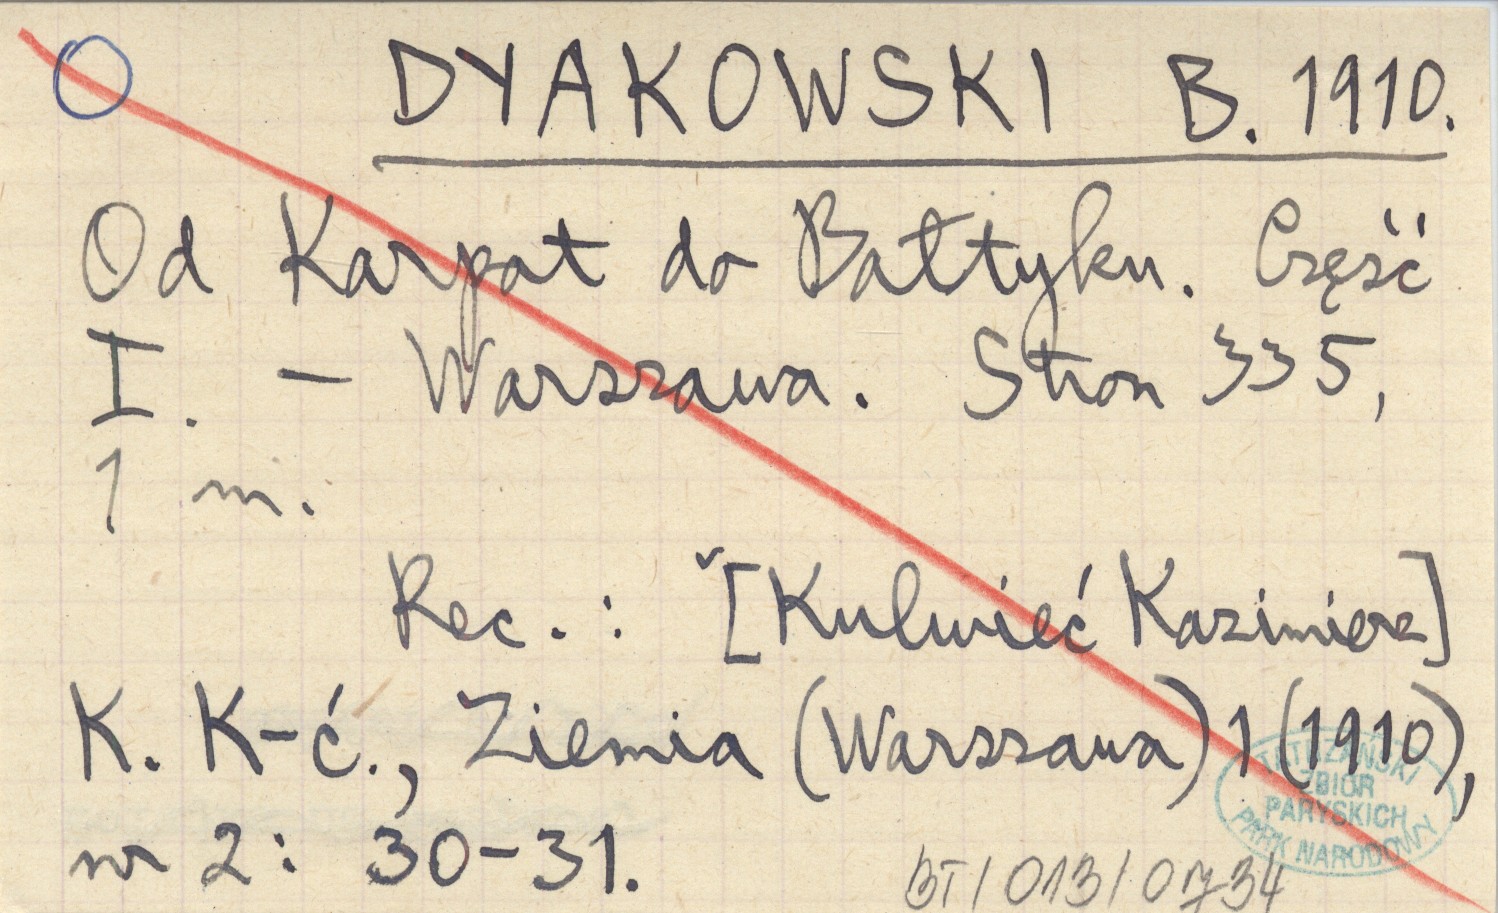 DYAKOWSKI B. 1910.
Od Karpat do Bałtyku. Część
I. – Warszawa. Stron 335,
1 m.
Rec. : [Kulwieć Kazimierz]
K. K-ć., Ziemia (Warszawa) 1 (1910),
nr 2: 30-31.
TATRZAŃSKI
ZBIOR
PARYSKICH
PARK NARODOWY
BT/013/0734